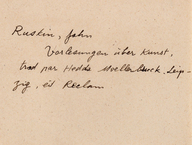 Ruskin, John
Vorlesungen über Kunst,
trad par Hedda Moellerbruck, Leip-
zig, ed Reclam